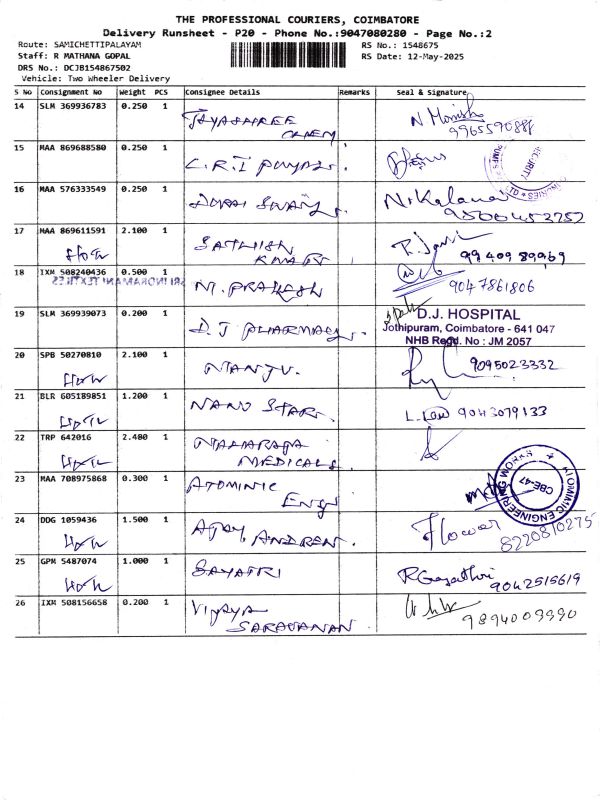 THE PROFESSIONAL COURIERS, COIMBATORE
Delivery Runsheet - P20 - Phone No.:9047080280 - Page No.:2
Route: SAMICHETTIPALAYAM
Staff: R MATHANA GOPAL
DRS No.: DCJB154867502
Vehicle: Two Wheeler Delivery
RS No.: 1548675
RS Date: 12-May-2025
S No Consignment No Weight PCS Consignee Details Remarks Seal & Signature
14 SLM 369936783 0.250 1 JAYASHREE N Monish
15 MAA 869688580 0.250 1 C.R.I PUMPS.
SECURITY
16 MAA 576333549 0.250 1 DURAI SWAMY. N. Kalamani
9500453752
17 MAA 869611591 2.100 1 SATHISH
KUMAR 99409 89969
18 IXM 508240436 0.500 1 M. PRAKASH 9047861806
SRI NOKAMANI TEXTILES
19 SLM 369939073 0.200 1 D.J PHARMACY. D.J. HOSPITAL
Jothipuram, Coimbatore - 641 047
NHB Regd. No : JM 2057
20 SPB 50270810 2.100 1 MANJU. 9095023332
21 BLR 605189851 1.200 1 NANO STAR. 9043079133
22 TRP 642016 2.480 1 MAHARAJA
MEDICALS.
23 MAA 708975868 0.300 1 ATOMINIC
ENGG
ATOMINIC ENGINEERING WORKS
CBE-47
24 DDG 1059436 1.500 1 AJAY, ANDREN. Flower
8220810275
25 GPM 5487074 1.000 1 GAYATRI R Gayathri
9042515619
26 IXM 508156658 0.200 1 VIJAYA
SARAVANAN. 9894009990